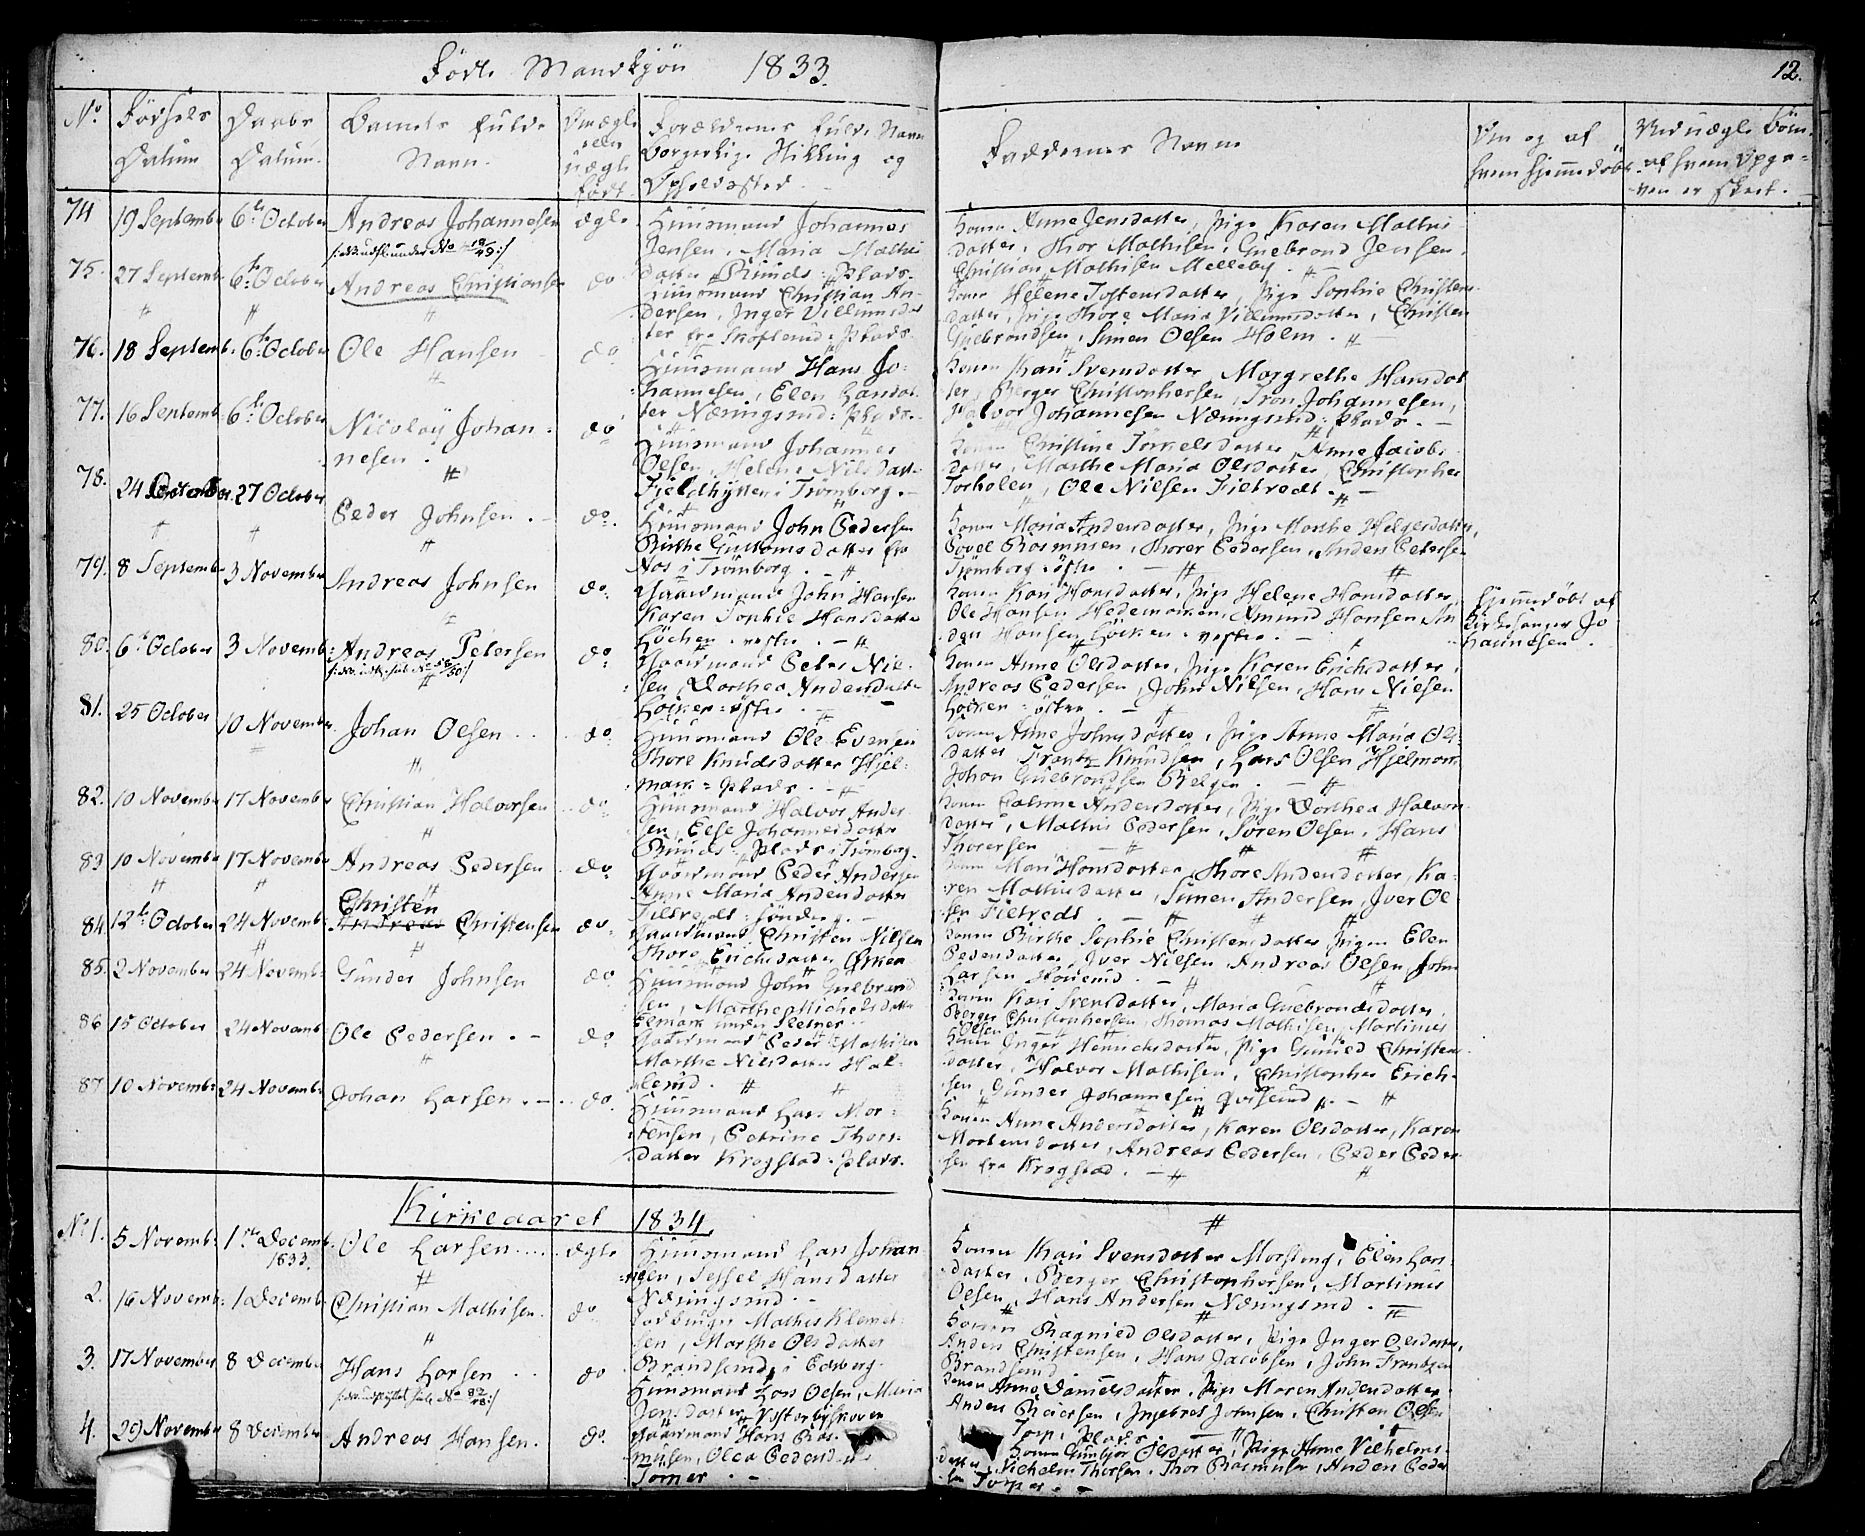 Fødte Mandkjøn 1833.
12.
No.
Fødsels Datum
Daabs Datum.
Barnets fulde Navn.
Om ægte eller uægte født.
Forældrenes fulde Navn Borgerlige Stilling og Opholdssted.
Faddernes Navne
Om og af hvem hjemmedøbt
Ved uægte Børn af hvem Opgaven er skeet.
74 19 Septembr 6te October Andreas Johannesen ægte
Huusmand Johannes
Jensen, Maria Mathis
datter Runds Plads.
Konen Anne Jensdatter, Pige Karen Mathis
datter, Thor Mathisen, Gulbrand Jensen
Christian Mathisen Melleby.
75. 27 Septemb 6te October Andreas Christiansen do
Huusmand Christian An-
dersen, Inger Villumsdat
ter fra Skofterud Plads.
Konen Helene Tostensdatter, Pige Sophie Christens
datter, Pige Thore Maria Villumsdatter, Christen
Gulbrandsen, Simen Olsen Holm.
76. 18 Septemb. 6te October Ole Hansen do
Huusmand Hans Jo-
hannesen, Elen Larsdat
ter Næringsrud: Plads.
Konen Kari Svensdatter, Margrethe Hansdat
ter, Berger Christophersen, Tron Johannesen,
Halvor Johannesen Næringsrud: Plads.
77. 16 Septemb. 6te October Nicolay Johan-
nesen. do
Huusmand Johannes
Olsen, Helene Nilsdatt.
Fjeldhytten i Trømborg.
Konen Christine Torkelsdatter, Anne Jacobs
datter, Marthe Maria Olsdatter, Christopher
Torholen, Ole Nilsen Fieltvedt.
78. 24 27 October Peder Johnsen. do.
Huusmand John Pedersen
Birthe Guttormsdatter fra
Nos i Trømborg.
Konen Maria Andersdatter, Pige Marthe Helgesdatter,
Povel Rasmusen, Thorer Pedersen, Anders Petersen
Trømborg østre.
79. 8 Septemb 3 November Andreas Johnsen do.
Gaardmand John Hansen
Karen Sophie Hansdatter
Høcken vestre.
Konen Kari Hansdatter, Pige Helene Hansdatter,
Ole Hansen Hedemarken, Amund Hansen, An
ders Hansen Høcken vestre.
Hjemmedøbt af
Kirkesanger Jo
hannesen.
80. 6te October 3 Novemb. Andreas Petersen do.
Gaardmand Peter Nil-
sen, Dorthea Andersdatt.
Høcken østre.
Konen Anne Olsdatter, Pige Karen Erichsdatter,
Andreas Pedersen, John Nilsen, Hans Nielsen
Høcken østre.
81. 25 October 10 November Johan Olsen do.
Huusmand Ole Evensen
Thore Knudsdatter Hjel-
mark Plads.
Konen Anne Johnsdatter, Pige Anne Maria Ols
datter Frantz Knudsen, Lars Olsen Hjelmark
Johan Gulbrandsen Velgen.
82. 10 November 17 November Christian Halvorsen do.
Huusmand Halvor Ander
sen, Else Johannesdatter
Runds Plads i Trømborg.
Konen Andersdatter, Pige Dorthea Halvors
datter, Mathis Pedersen, Søren Olsen, Hans
Thorersen
83 10 Novemb 17 November Andreas Pedersen do.
Gaardmand Peder Andersen
Anne Maria Andersdatter
Fieltvedt søndre.
Konen Mari Hansdatter, Thore Andersdatter, Ka-
ren Mathisdatter, Simen Andersen, Iver Ol
sen Fieltvedt.
84. 12te October 24 Novemb. Christen
Andreas Christensen do.
Gaardmand Christen Nilsen
Thore Erichsdatter
Konen Birthe Sophie Christensdatter Pigen Elen
Pedersdatter, Iver Nilsen Andreas Olsen, John
Larsen
85. 2 November 24 Novemb. Gunder Johnsen do.
Huusmand John Gulbrand
sen, Marthe Michelsdatter
Elmark under Sletner
Konen Kari Svensdatter, Maria Gulbrandsdatter,
Berger Christophersen, Thomas Mathisen, Martinus
Olsen
86 15 October 24 Novemb. Ole Pedersen. do
Gaardmand Peder Mathisen
Marthe Nilsdatter Hal-
lerud.
Konen Inger Henrichsdatter, Pige Gunild Christens
datter, Halvor Mathisen, Christopher Erich-
sen, Gunder Johannesen
87 10 Novemb. 24 Novemb. Johan Larsen. do.
Huusmand Lars Mor-
tensen, Petrine Thors-
datter Krogstad Plads.
Konen Anne Andersdatter, Karen Olsdatter, Karen
Mortensdatter, Andreas Pedersen, Peder Peder
sen fra Krogstad.
Kirkeaaret 1834.
No 1. 5 Novemb. 1ste Decemb. 1833. Ole Larsen ægte
Huusmand Lars Johan
nesen, Sessel Hansdatter
Næringsrud.
Konen Kari Svensdatter Morstong, Elen Lars
datter, Berger Christophersen, Martinus
Olsen, Hans Andersen Næringsrud.
2. 16 Novemb. 1 Decemb. Christian Mathisen. do
Mathis Klemet-
sen, Marthe Olsdatter
Brandsrud i Eidsberg.
Konen Ragnild Olsdatter, Pige Inger Olsdatter,
Anders Christensen, Hans Jacobsen, John Frantzen
Brandsrud
3. 17 November 8 December Hans Larsen do
Huusmand Lars Olsen, Maria
Jensdatter Vesterbyskoven
Konen Anne Danielsdatter, Pige Maren Andersdatter
Anders Reiersen, Ingebret Johnsen, Christen Olsen
Torp Plads
4. 29 November 8 December Andreas Hansen. do.
Gaardmand Hans Ras-
musen, Olea Pedersd
Torper.
Konen Gunbjør Olsdatter, Pige Anne Vilhelms
datter, Vilhelm Thorsen, Thor Rasmusen, Anders Peder
sen Torper.